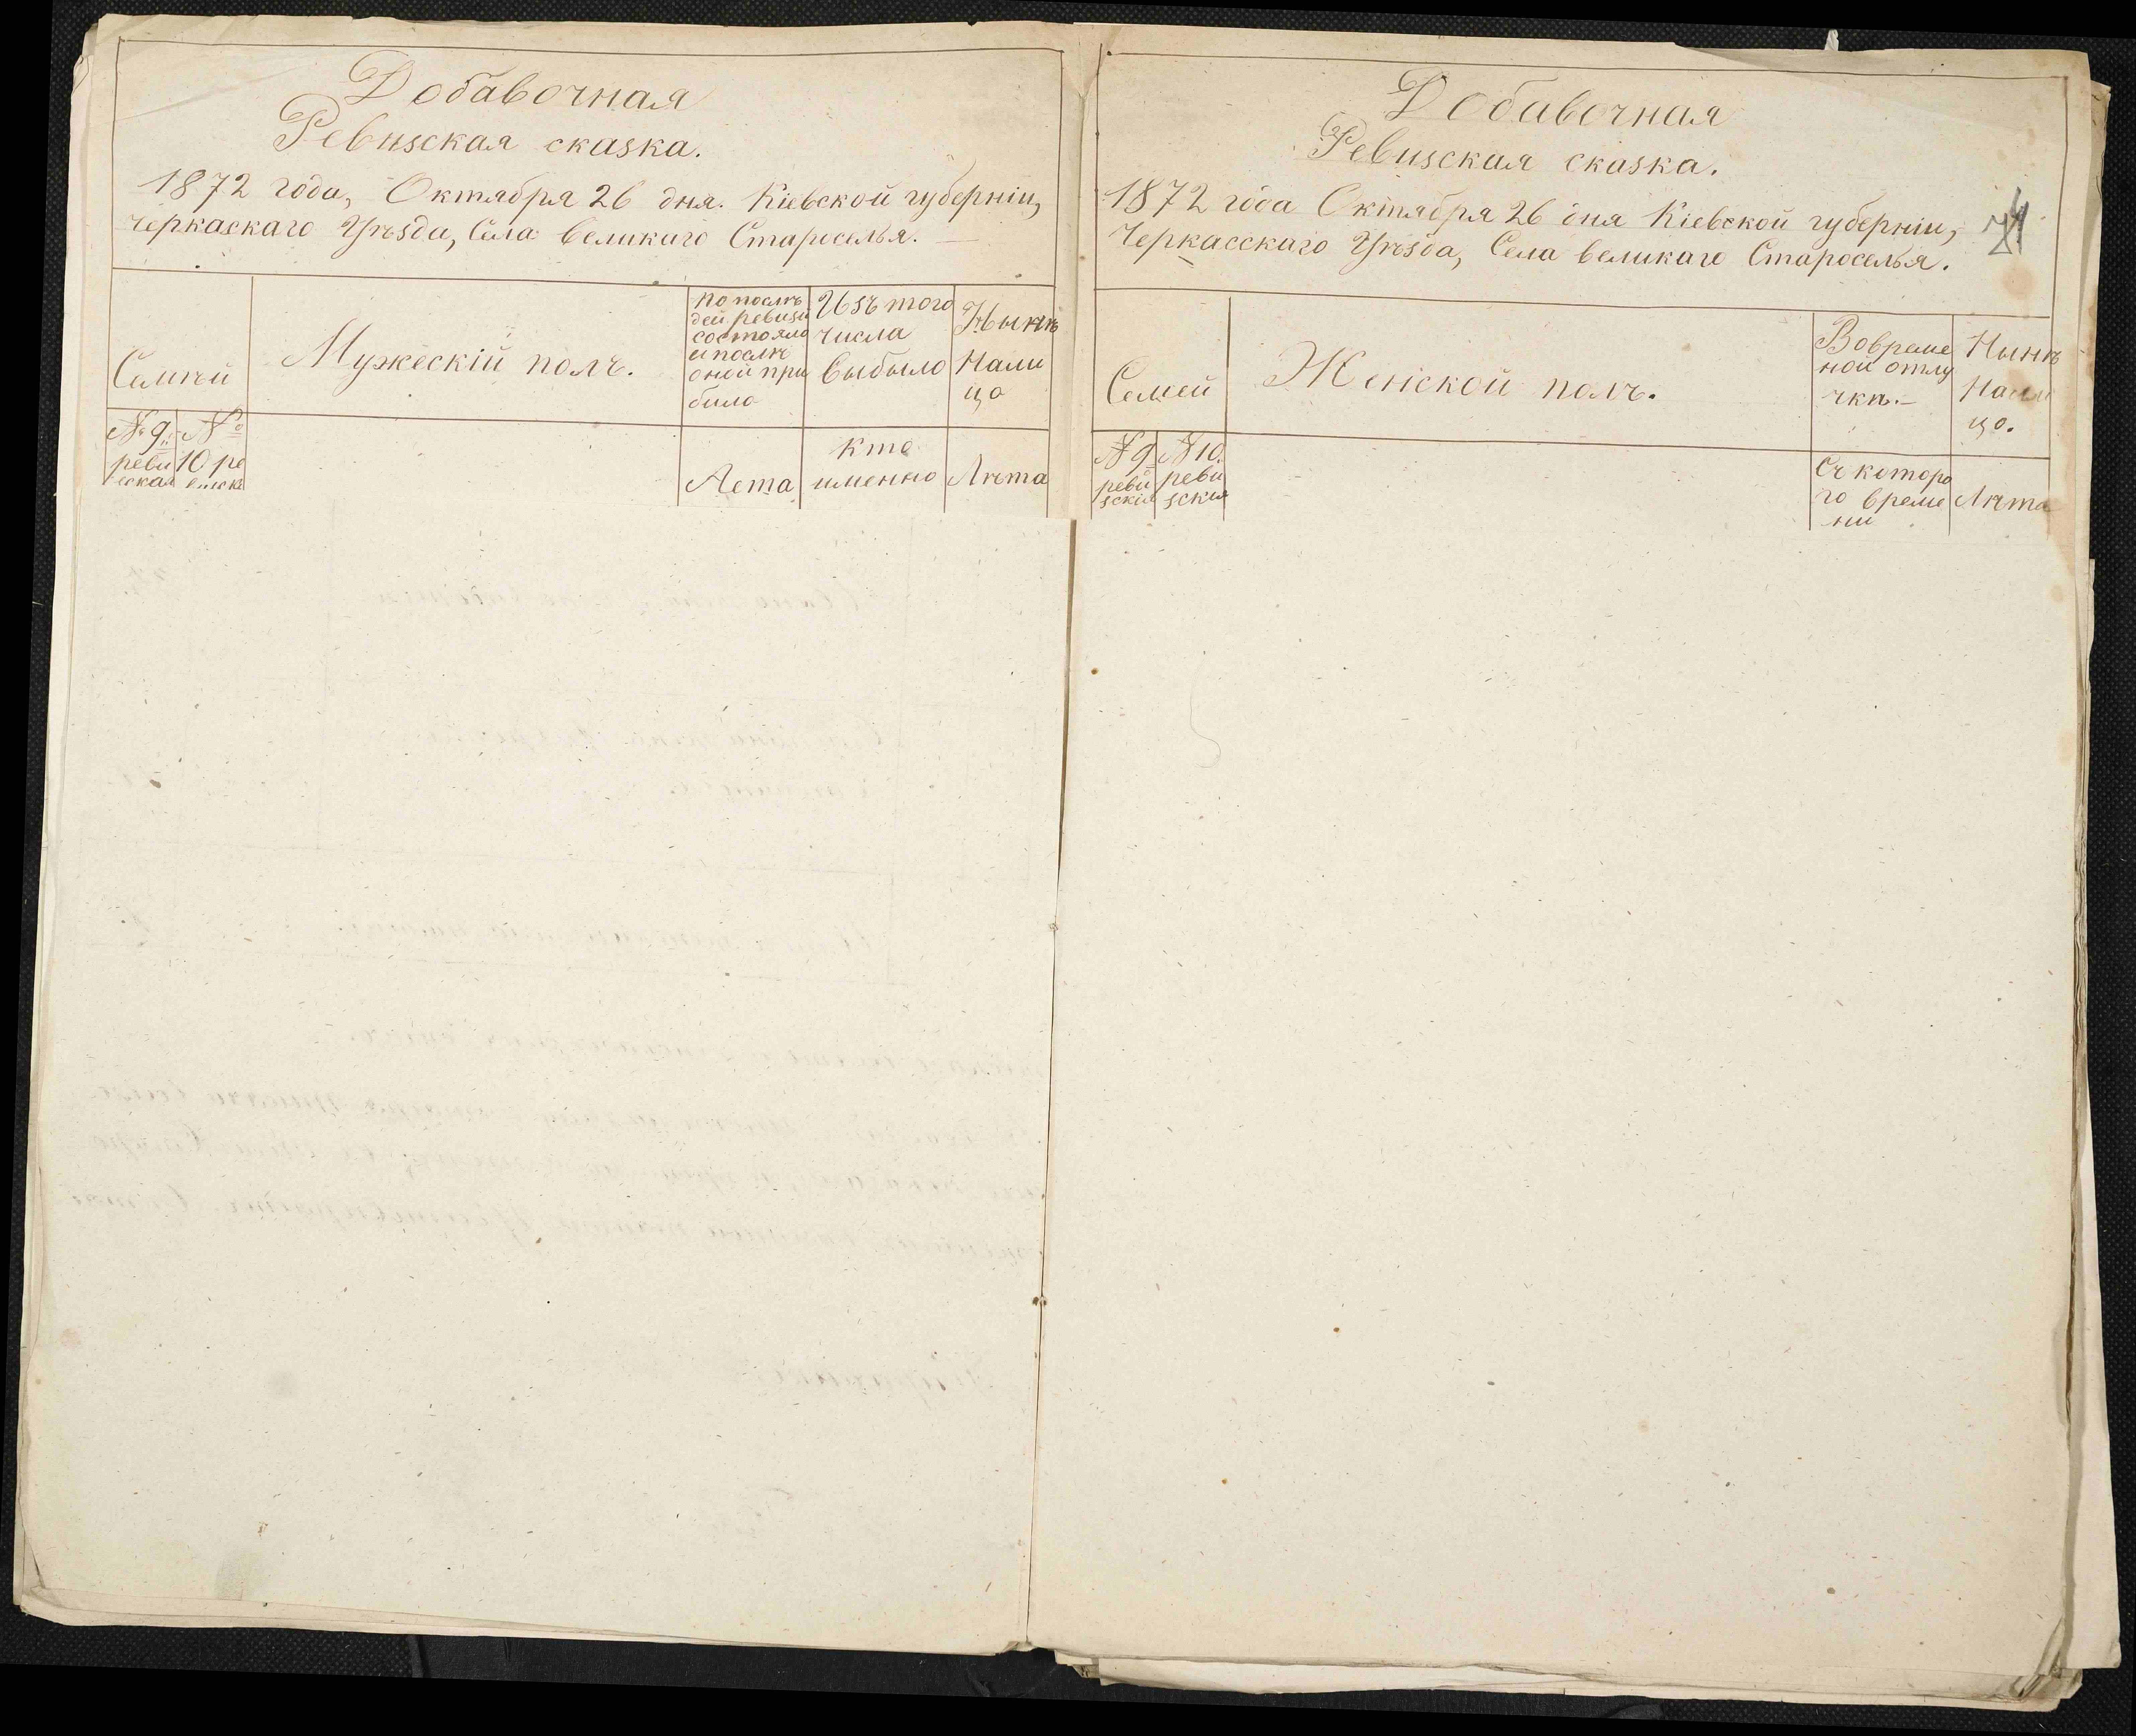 Добавочная
Ревизская сказка.
1872 года, Октября 26 дня. Кіевской губерніи,
Черкаскаго Уѣзда, Села Великаго Староселья. —
Семѣй
Мужескій полъ.
по послѣ
дей ревизи
состояло
и послѣ
оной при
било
Изъ того
числа
выбыло
Нынѣ
Нали
цо
№ 9
реви
зская
№
10 ре
Лета
кто
именно
Лѣта
Добавочная
Ревизская сказка.
1872 года Октября 26 дня Кіевской губерніи,
Черкасскаго Уѣзда, Села великаго Староселья.
Семей
Женской полъ.
Вовреме
ной отлу
чкѣ.—
Нынѣ
Нали
цо.
№ 9
реви
зскія
№ 10.
реви
зския
Съ которо
го време
ни
Лѣта